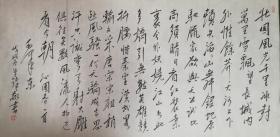 北國風光千里冰封
萬里雪飄望長城內
外惟餘莽莽大河上下
頓失滔滔山舞銀蛇原
馳蠟象欲與天公試比
高須晴日看紅裝素
裹分外妖嬈江山如此
多嬌引無數英雄競
折腰惜秦皇漢武略
輸文采唐宗宋祖稍遜
風騷一代天驕成吉思
汗只識彎弓射大雕
俱往矣數風流人物還
看今朝 沁園春雪
毛澤東